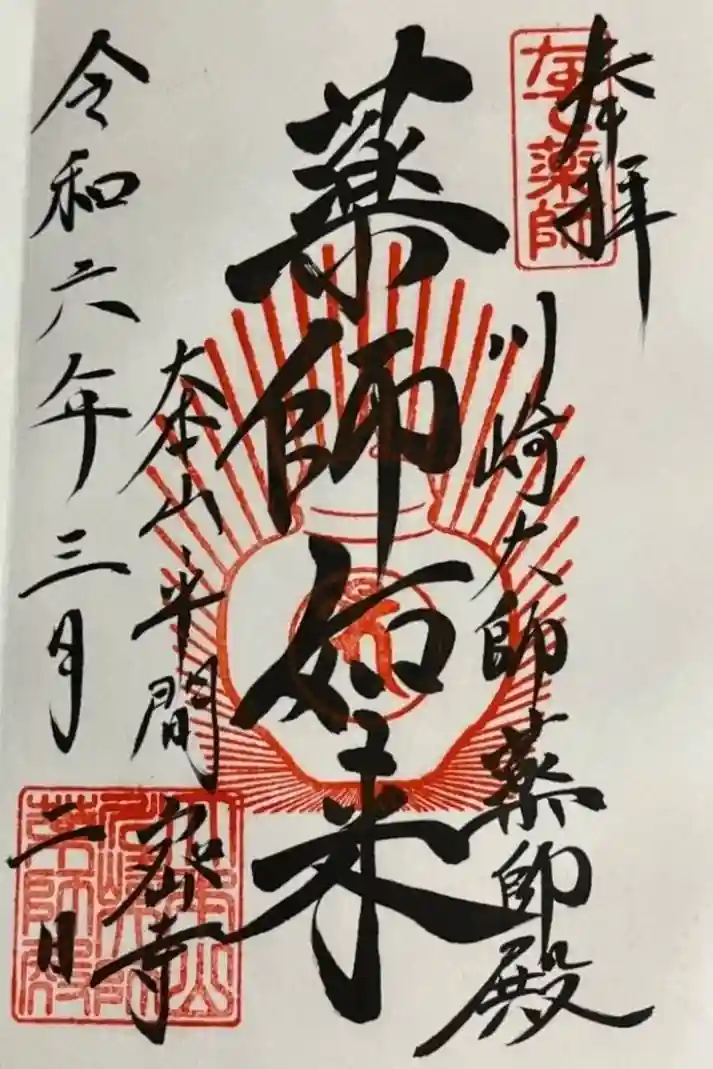 奉拝
なで薬師
川崎大師薬師殿
薬師如来
大本山平間密寺
令和六年三月二日